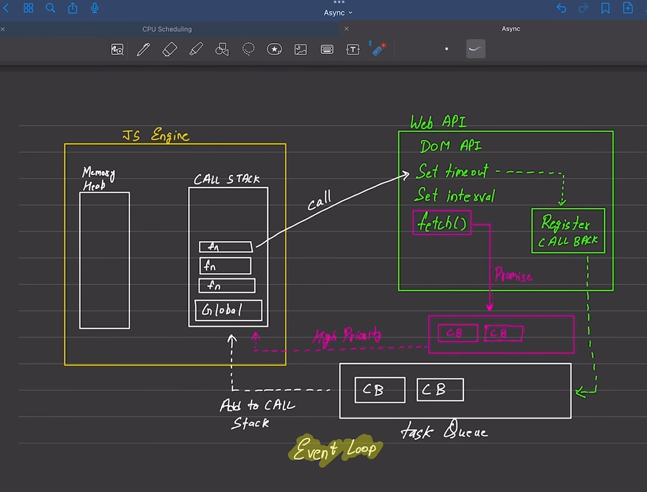 Async
CPU Scheduling
Async
JS Engine
Memory
Heab
CALL STACK
fn
fn
fn
Global
call
Web API
DOM API
Set timeout
Set interval
fetch()
Register
CALL BACK
Promise
CB
CB
High Priority
CB
CB
Task Queue
Add to CALL
Stack
Event Loop